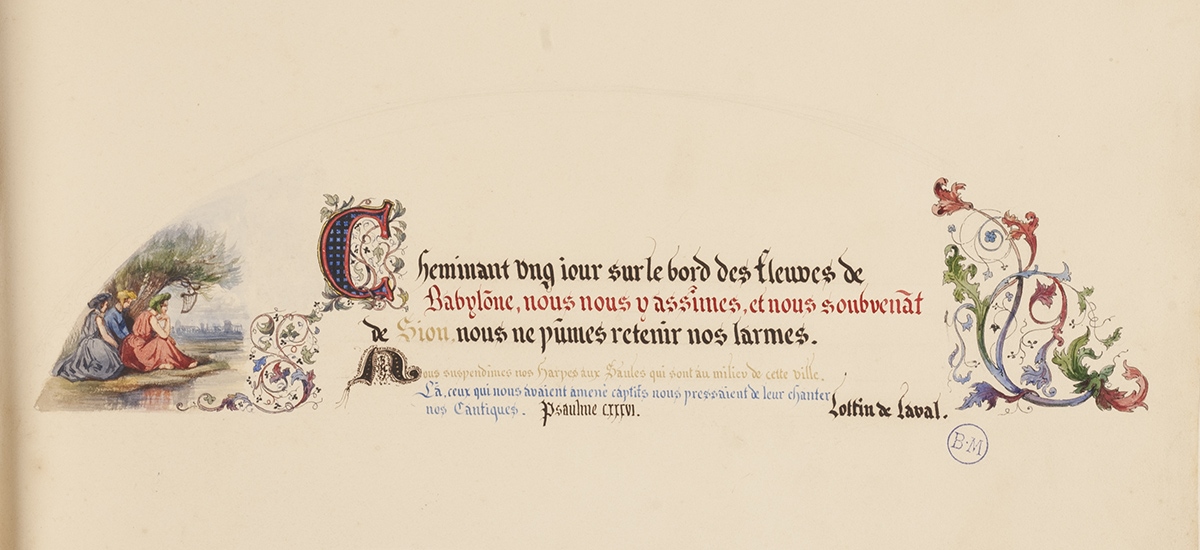 Cheminant vng iour sur le bord des fleuves de
Babylõne, nous nous y assîmes, et nous soubvenãt
de Sion nous ne pûmes retenir nos larmes.
Nous suspendîmes nos Harpes aux Saules qui sont au milieu de cette ville.
Là, ceux qui nous avaient amené captifs nous pressaient de leur chanter
nos Cantiques. Psaulme CXXXVI. Lottin de Laval.
B·M